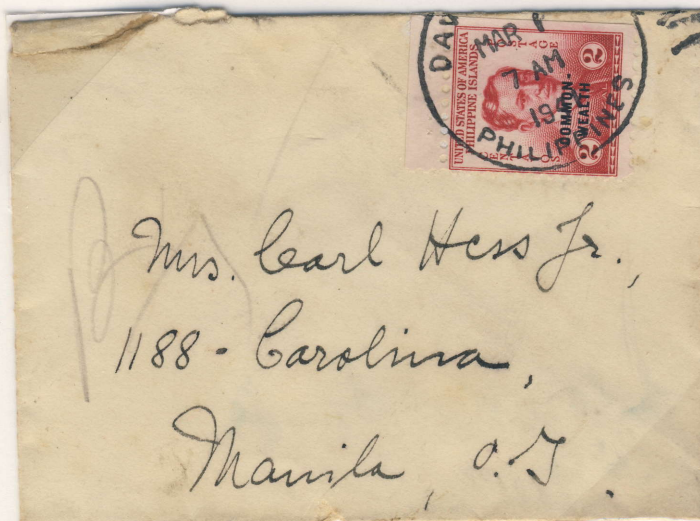 MAR 1
7 AM
PHILIPPINES
UNITED STATES OF AMERICA
PHILIPPINE ISLANDS
POSTAGE
CENTAVOS
2 2
COMMON-
WEALTH
Mrs. Carl Hess Jr.,
1188 - Carolina,
Manila, P.I.